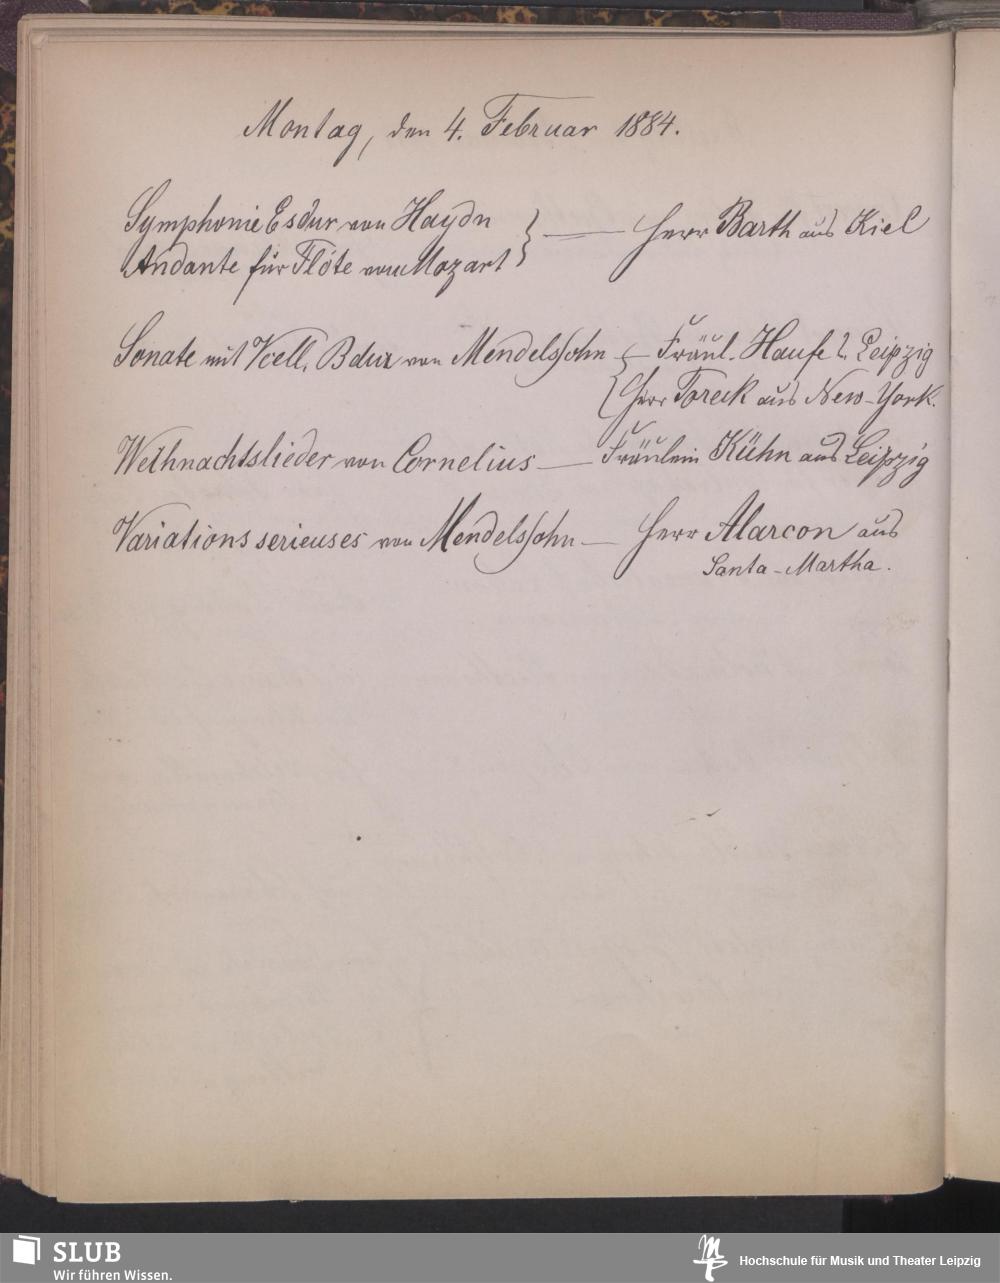 Montag, den 4. Februar 1884.
Symphonie Esdur von Haydn } — Herr Barth aus Kiel
Andante für Flöte von Mozart
Sonate mit Vcell. Bdur von Mendelssohn { Fräul. Haufe 2. Leipzig
Herr Toreck aus New-York.
Weihnachtslieder von Cornelius — Fräulein Kühn aus Leipzig
Variations serieuses von Mendelssohn — Herr Alarcon aus
Santa-Martha.
SLUB
Wir führen Wissen.
Hochschule für Musik und Theater Leipzig